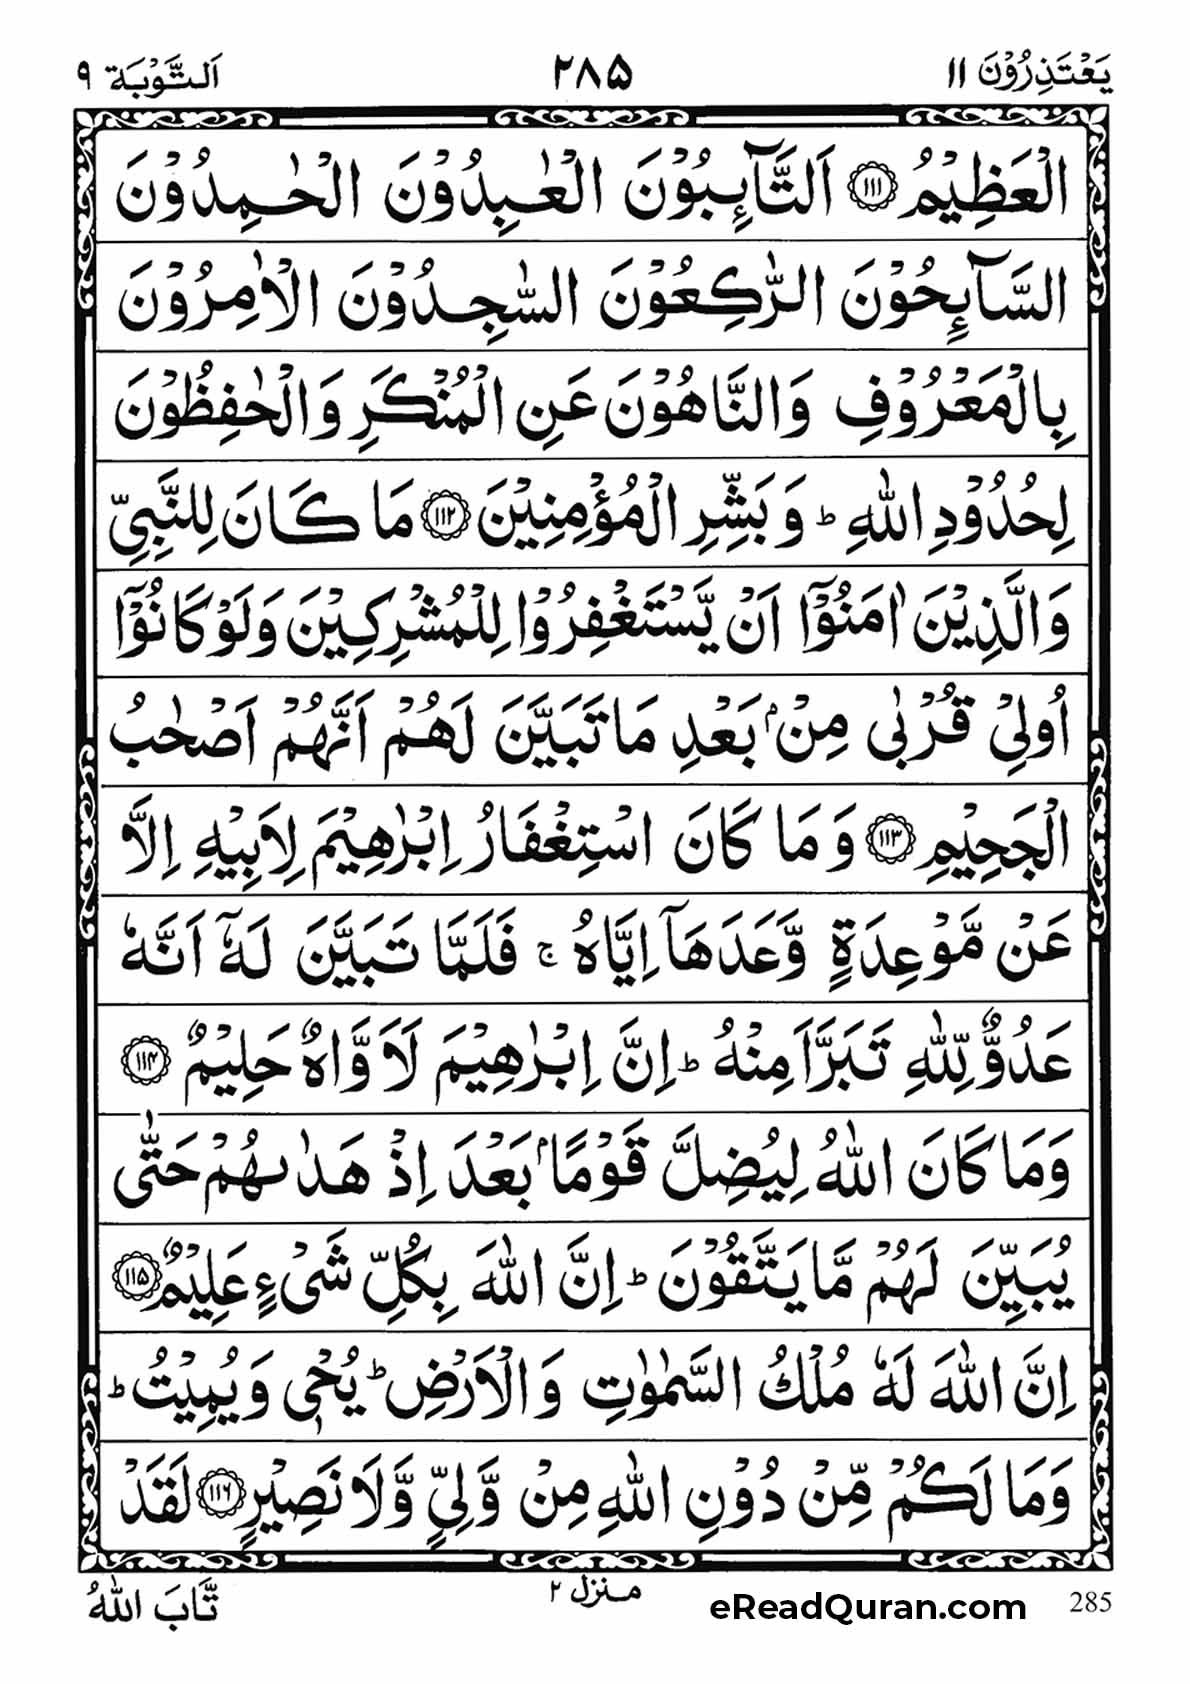 يَعْتَذِرُوْنَ ١١ ٢٨٥ اَلتَّوْبَة ٩
الْعَظِيْمُ ﴿١١١﴾ اَلتَّآئِبُوْنَ الْعٰبِدُوْنَ الْحٰمِدُوْنَ
السَّآئِحُوْنَ الرّٰكِعُوْنَ السّٰجِدُوْنَ الْاٰمِرُوْنَ
بِالْمَعْرُوْفِ وَالنَّاهُوْنَ عَنِ الْمُنْكَرِ وَالْحٰفِظُوْنَ
لِحُدُوْدِ اللّٰهِ ؕ وَ بَشِّرِ الْمُؤْمِنِيْنَ ﴿١١٢﴾ مَا كَانَ لِلنَّبِيِّ
وَالَّذِيْنَ اٰمَنُوْۤا اَنْ يَّسْتَغْفِرُوْا لِلْمُشْرِكِيْنَ وَلَوْ كَانُوْۤا
اُولِيْ قُرْبٰى مِنْۢ بَعْدِ مَا تَبَيَّنَ لَهُمْ اَنَّهُمْ اَصْحٰبُ
الْجَحِيْمِ ﴿١١٣﴾ وَ مَا كَانَ اسْتِغْفَارُ اِبْرٰهِيْمَ لِاَبِيْهِ اِلَّا
عَنْ مَّوْعِدَةٍ وَّعَدَهَاۤ اِيَّاهُ ۚ فَلَمَّا تَبَيَّنَ لَهٗۤ اَنَّهٗ
عَدُوٌّ لِّلّٰهِ تَبَرَّاَ مِنْهُ ؕ اِنَّ اِبْرٰهِيْمَ لَاَوَّاهٌ حَلِيْمٌ ﴿١١٤﴾
وَمَا كَانَ اللّٰهُ لِيُضِلَّ قَوْمًۢا بَعْدَ اِذْ هَدٰىهُمْ حَتّٰى
يُبَيِّنَ لَهُمْ مَّا يَتَّقُوْنَ ؕ اِنَّ اللّٰهَ بِكُلِّ شَيْءٍ عَلِيْمٌ ﴿١١٥﴾
اِنَّ اللّٰهَ لَهٗ مُلْكُ السَّمٰوٰتِ وَالْاَرْضِ ؕ يُحْيٖ وَيُمِيْتُ ؕ
وَمَا لَكُمْ مِّنْ دُوْنِ اللّٰهِ مِنْ وَّلِيٍّ وَّلَا نَصِيْرٍ ﴿١١٦﴾ لَقَدْ
تَّابَ اللّٰهُ منزل ٢ eReadQuran.com 285